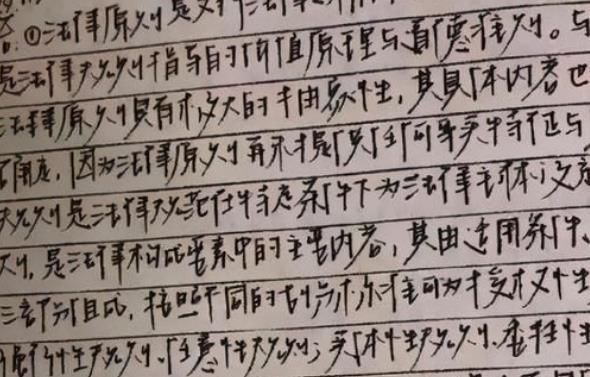 答:①法律原则是
是法律规则指导的价值原理与道德准则。与
法律原则具有较大的抽象性,其具体内容也
确定,因为法律原则再不提供任何事实特征与
规则是法律规范在特定条件下为法律主体设定
则,是法律构成要素中的主要内容,其由适用条件、
三部分组成,按照不同的划分标准可为授权性
强行性规则、任意性规则;实体性规则、